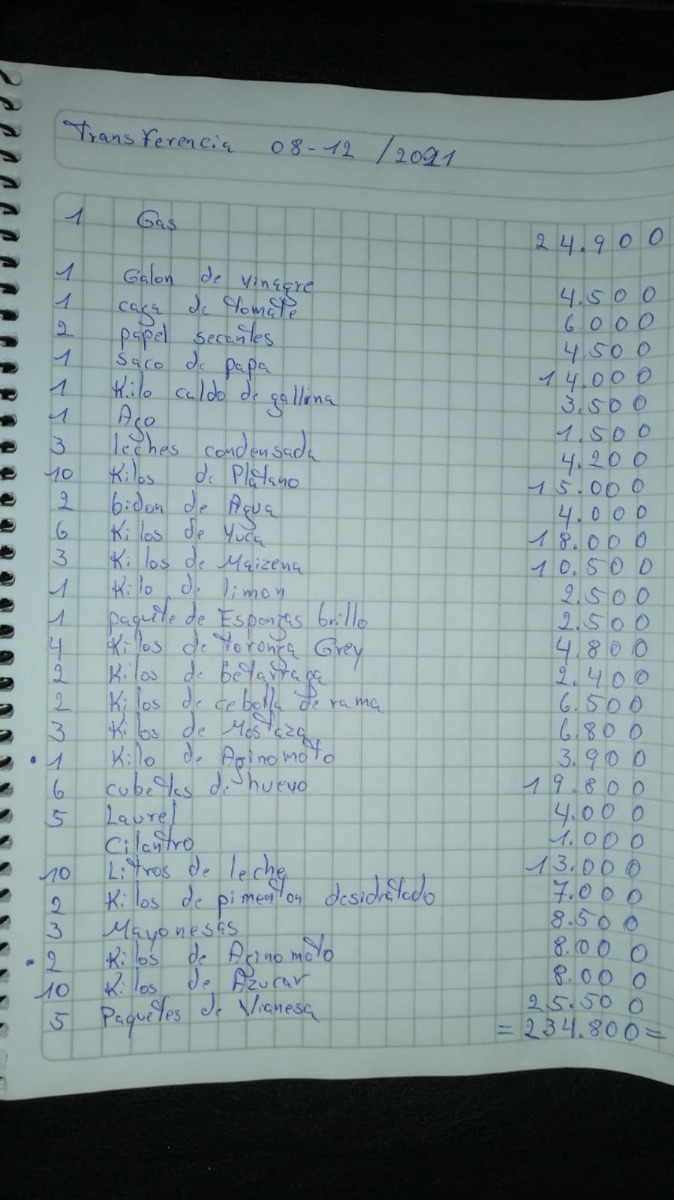 Transferencia 08-12 /2021
1 Gas 24.900
1 Galon de vinagre 4.500
1 caga de tomate 6.000
2 papel secantes 4.500
1 Saco de papa 14.000
1 Kilo caldo de gallina 3.500
1 Ago 1.500
3 leches condensada 4.200
10 Kilos de Platano 15.000
2 bidon de Agua 4.000
6 Kilos de Yuca 18.000
3 Kilos de Maizena 10.500
1 Kilo de limon 2.500
1 paquete de Esponzas brillo 2.500
4 Kilos de Toronga Grey 4.800
2 Kilos de betarraga 2.400
2 Kilos de cebolla de rama 6.500
3 Kilos de Mostaza 6.800
• 1 Kilo de Aginomoto 3.900
6 cubetas de huevo 19.800
5 Laurel 4.000
Cilantro 1.000
10 Litros de leche 13.000
2 Kilos de pimenton desidratado 7.000
3 Mayonesas 8.500
• 2 Kilos de Aginomoto 8.000
10 Kilos de Azucar 8.000
5 Paquetes de Vianesa 25.500
=234.800=